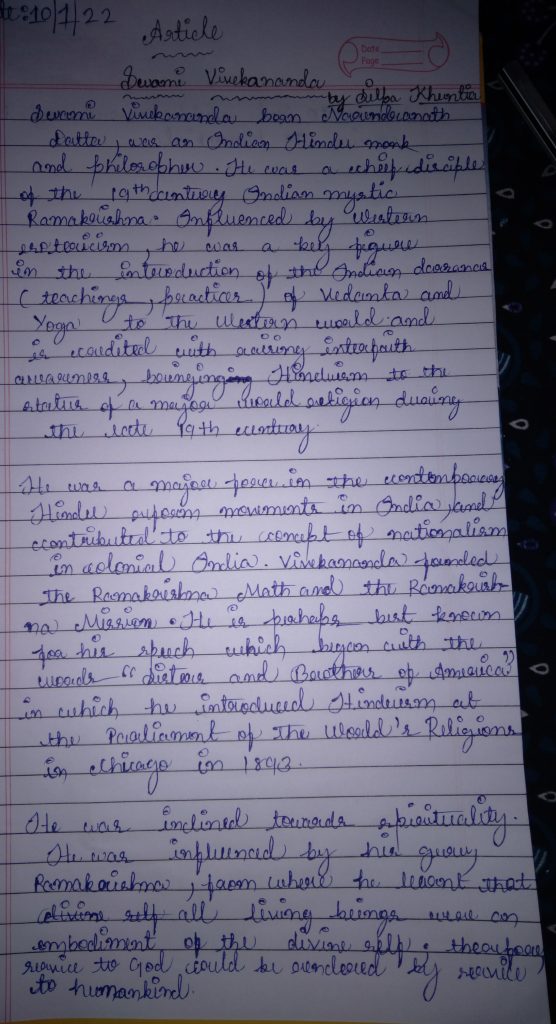 te:10/1/22
Article
Date
Page
Swami Vivekananda
by Silpa Khuntia
Swami Vivekananda born Narendranath
Datta, was an Indian Hindu monk
and philosopher. He was a cheif disciple
of the 19th century Indian mystic
Ramakrishna. Influenced by Western
esotericism, he was a key figure
in the introduction of the Indian dearanas
(teachings, practices) of Vedanta and
Yoga to the Western world and
is credited with raising interfaith
awareness, bringing Hinduism to the
status of a major world religion during
the late 19th century.
He was a major force in the contemporary
Hindu reform movements in India, and
contributed to the concept of nationalism
in colonial India. Vivekananda founded
the Ramakrishna Math and the Ramakrish-
na Mission. He is perhaps best known
for his speech which began with the
words "Sisters and Brothers of America"
in which he introduced Hinduism at
the Parliament of The World's Religions
in Chicago in 1893.
He was inclined towards spirituality.
He was influenced by his guru
Ramakrishna, from where he learnt that
divine self all living beings were an
embodiment of the divine self; therefore,
service to God could be rendered by service
to humankind.